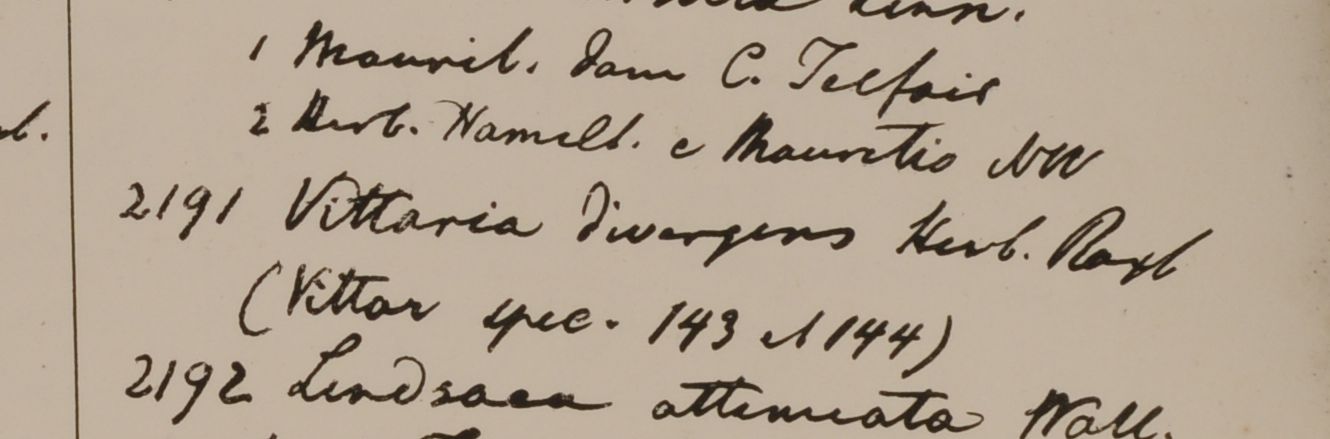 Linn.
1 Maurit. Dom C. Telfair
2 Herb. Hamilt. e Mauritio
2191 Vittaria divergens Herb. Roxb
(Vittar spec. 143 et 144)
2192 Lindsaea attenuata Wall.